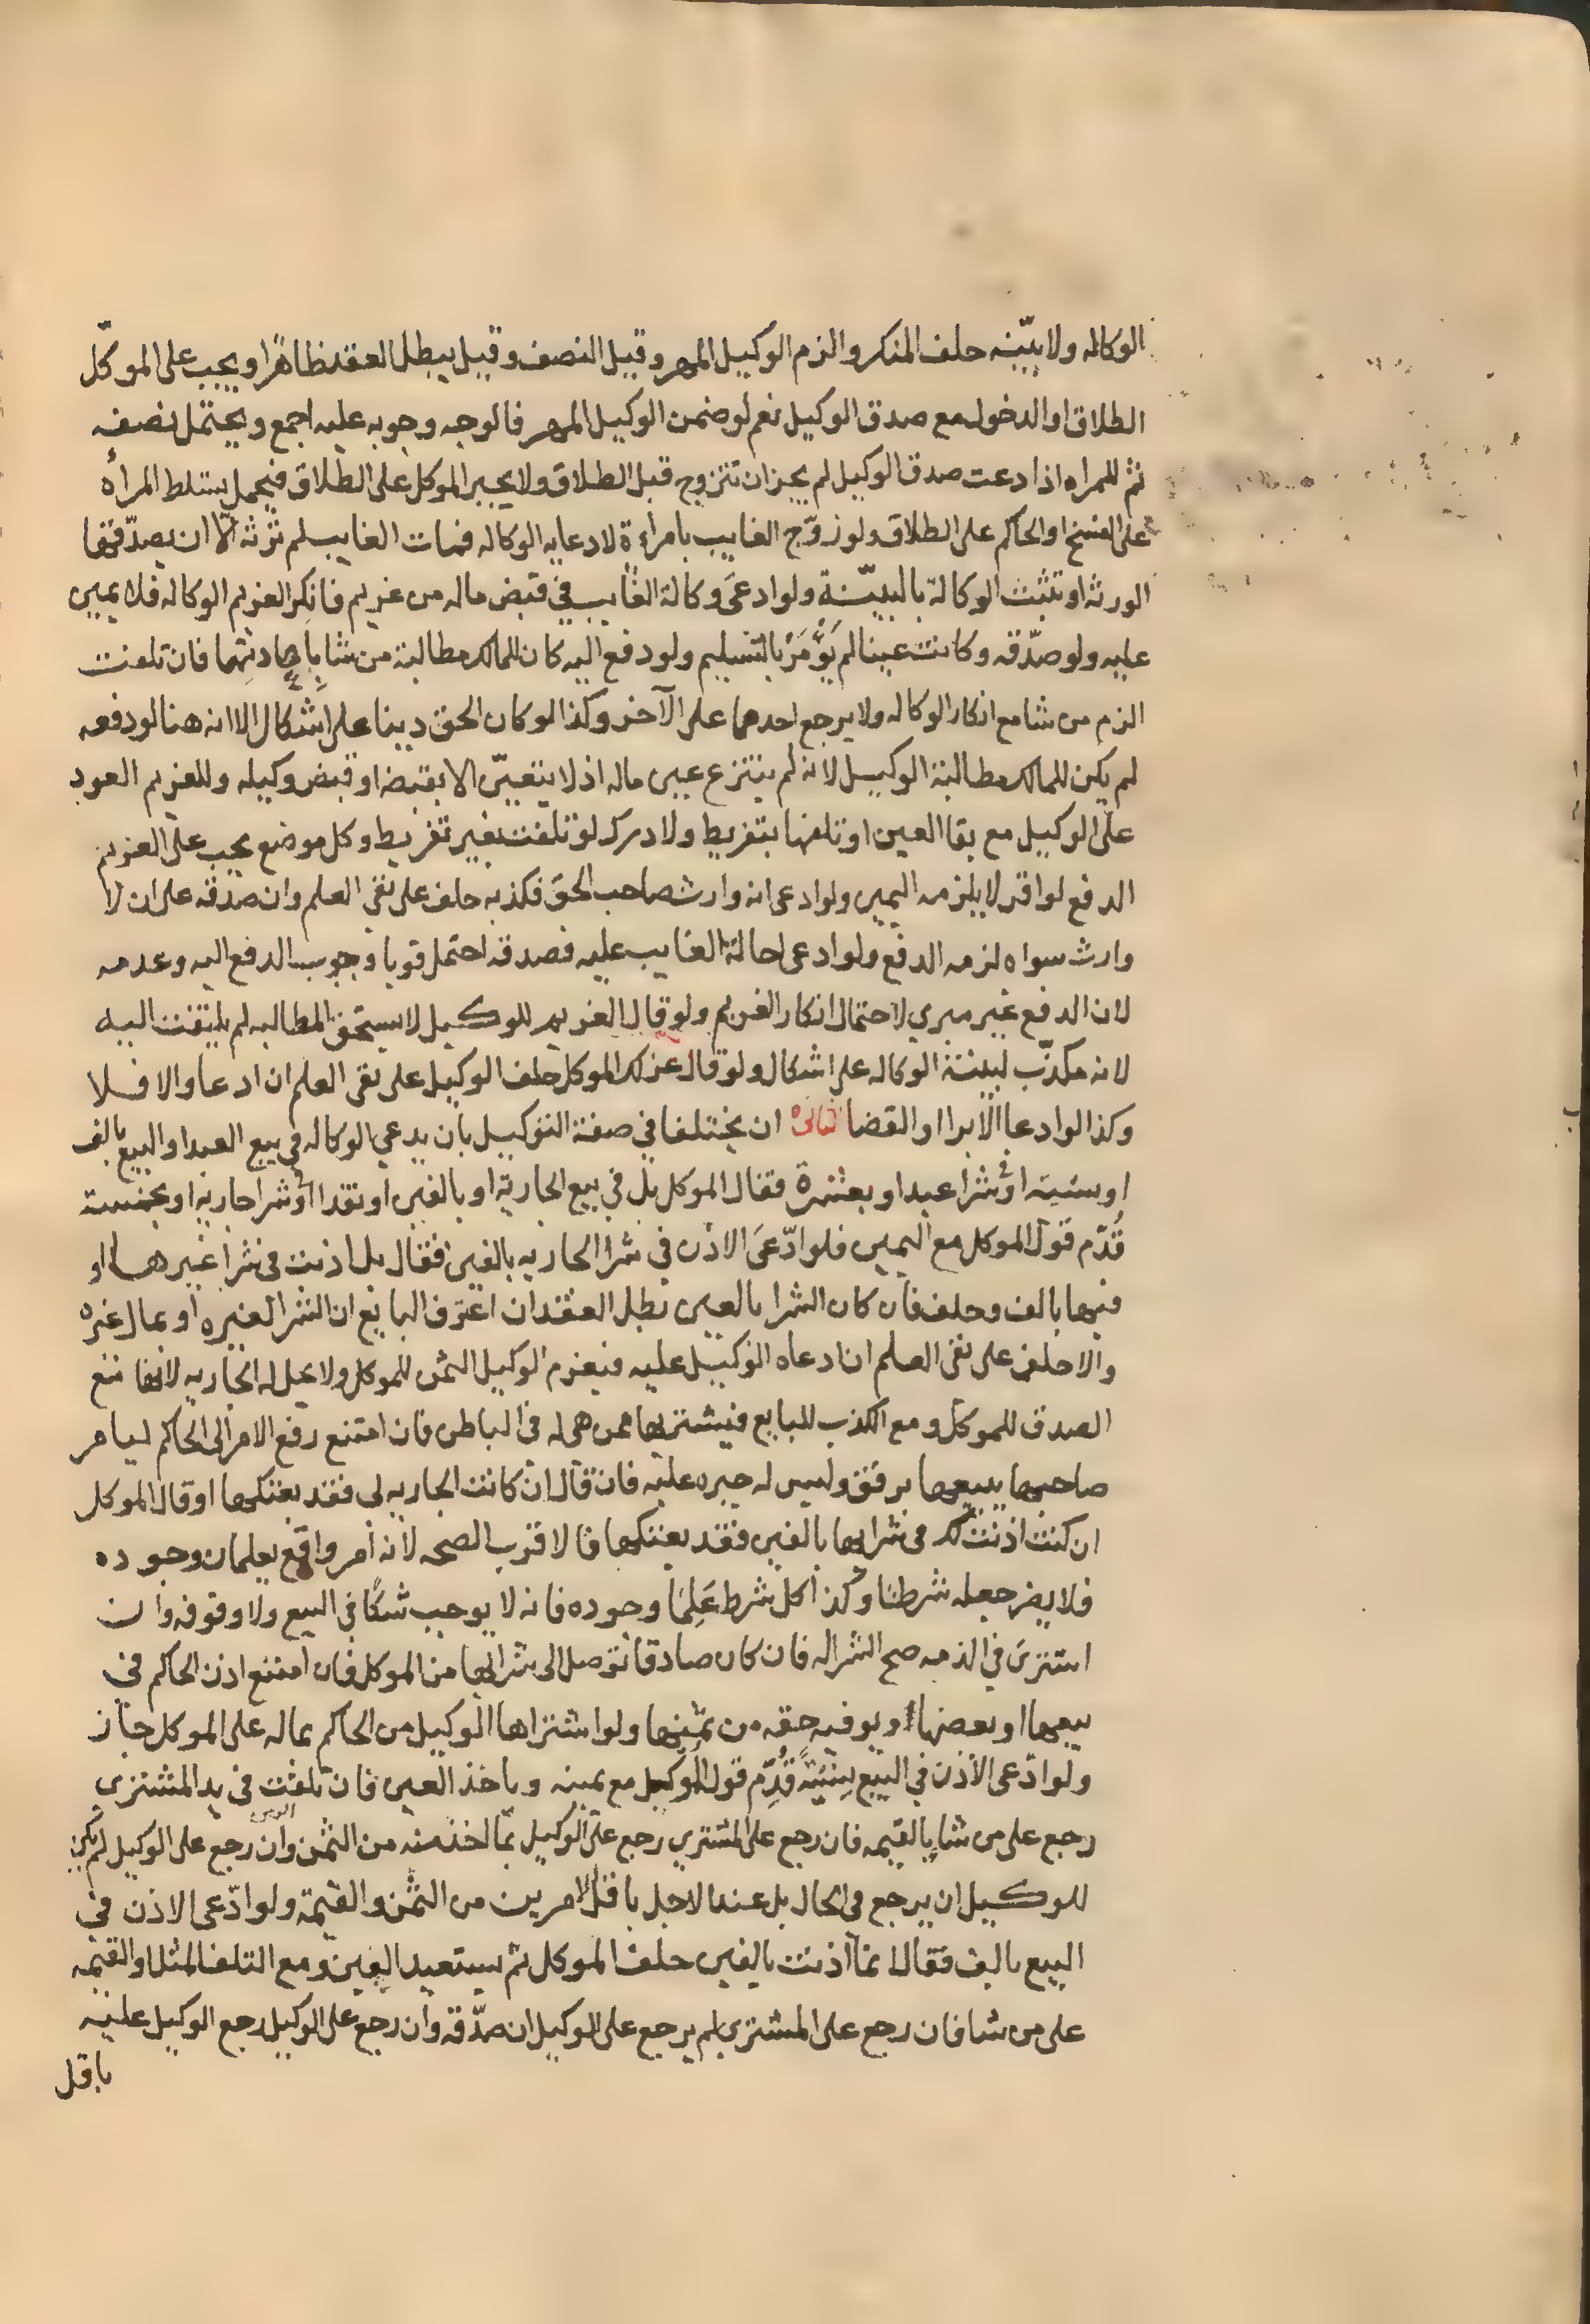 الوكاله ولا بيّنه حلف المنكر والزم الوكيل المهر وقيل النصف وقيل يبطل العقد ظاهرًا ويجب على الموكّل
الطلاق او الدخول مع صدق الوكيل نعم لو ضمن الوكيل المهر فالوجه وجوبه عليه اجمع ويحتمل نصفه
ثم للمراه اذا ادعت صدق الوكيل لم يجز ان تتزوج قبل الطلاق ولا يجبر الموكل على الطلاق فيحتمل تسلط المرأه
على الفسخ او الحاكم على الطلاق ولو زوّج الغايب بامراءة لادعايه الوكاله فمات الغايب لم ترثه الّا ان يصدّقها
الورثه او تثبت الوكالة بالبيّنة ولو ادعىَ وكالة الغايب في قبض ماله من غريم فانكر الغريم الوكاله فلا يمين
عليه ولو صدّقه وكانت عينا لم يؤمَرْ بالتسليم ولو دفع اليه كان للمالك مطالبة من شا باعادتها فان تلفت
الزم من شا مع انكار الوكاله ولا يرجع احدهما على الآخر وكذا لو كان الحق دينا على اشكال الا انه هنا لو دفعه
لم يكن للمالك مطالبة الوكيل لانه لم ينتزع عين ماله اذ لا يتعيّن الا بقبضه او قبض وكيله وللغريم العود
على الوكيل مع بقا العين او تلفها بتفريط ولا درك لو تلفت بغير تفريط وكل موضع يجب على الغريم
الدفع لو اقر لا يلزمه اليمين ولو ادعى انه وارث صاحب الحق فكذبه حلف على نفي العلم وان صدقه على ان لا
وارث سواه لزمه الدفع ولو ادعى احالة الغايب عليه فصدقه احتمل قويا وجوب الدفع اليه وعدمه
لان الدفع غير مبري لاحتمال انكار الغريم ولو قال الغريم للوكيل لا يستحق المطالبه لم يلتفت اليه
لانه مكذّب لبينة الوكاله على اشكال ولو قال عزلك الموكل حلف الوكيل على نفي العلم ان ادعا والا فلا
وكذا لو ادعا الابرا او القضا ان يختلفا في صفة التوكيل بأن يدعي الوكاله في بيع العبد او البيع بالف
او نسيئه او في شرا عبد او بعشرة فقال الموكل بل في بيع الجارية او بالفين او نقدا او في شرا جاريه او بخمسة
قُدّم قول الموكل مع اليمين فلو ادّعىَ الاذن في شرا الجاريه بالفين فقال بل اذنت في شرا غيرها او
فيها بالف وحلف فأن كان الشرا بالعين بطل العقد ان اعترف البايع ان الشرا لغيره او بمال غيره
والا حلف على نفي العلم ان ادعاه الوكيل عليه فيغرم الوكيل الثمن للموكل ولا يحل له الجاريه لانها مع
الصدق للموكل ومع الكذب للبايع فيشتريها ممن هي له في الباطن فان امتنع رفع الامر الى الحاكم ليامر
صاحبها ببيعها برفق وليس له جبره عليه فان قال ان كانت الجاريه لي فقد بعتكها او قال الموكل
ان كنت اذنت لك في شرايها بالفين فقد بعتكها فالاقرب الصحه لانه أمر واقع يعلمان وجوده
فلا يضر جعله شرطا وكذا كل شرط عَلِمَا وجوده فانه لا يوجب شكًا في البيع ولا وقوفه وان
اشترىَ في الذمه صح الشرا له فان كان صادقا توصل الى شرايها من الموكل فان امتنع اذن الحاكم في
بيعها او بعضها ويوفيه حقه من ثمنها ولو اشتراها الوكيل من الحاكم بماله على الموكل جاز
ولو ادّعى الأذن في البيع نِسْيئَةً قُدِّم قول الموكل مع يمينه وياخذ العين فان تلفت في يد المشتري
رجع على من شا بالقيمه فان رجع على المشتري رجع على الوكيل بما اخذ منه من الثمن وان رجع على الوكيل لم يكن
للوكيل ان يرجع في الحال بل عند الاجل باقل الامرين من الثمن والقيمة ولو ادّعى الاذن في
البيع بالف فقال انما أذنت بالفين حلف الموكل ثم يستعيد العين ومع التلف المثل او القيمه
على من شا فان رجع على المشتري لم يرجع على الوكيل ان صدّقه وان رجع على الوكيل رجع الوكيل عليه
باقل